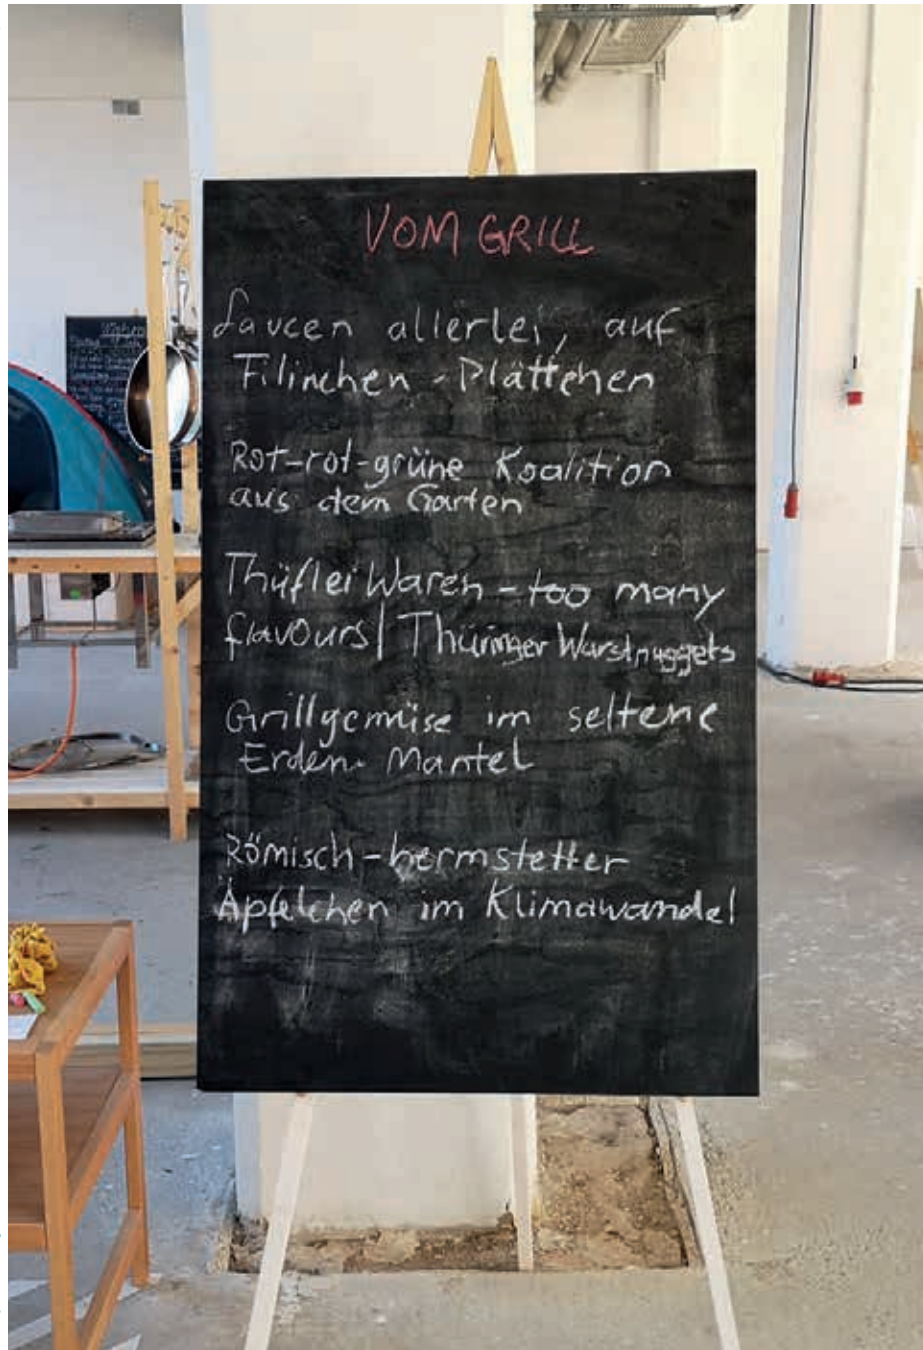 VOM GRILL
Saucen allerlei, auf
Filinchen-Plättchen
Rot-rot-grüne Koalition
aus dem Garten
Thüflei Waren - too many
flavours/ Thüringer Wurstnuggets
Grillgemüse im seltene
Erden-Mantel
Römisch-hermstetter
Äpfelchen im Klimawandel